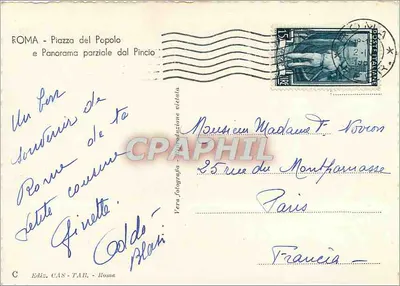 ROMA - Piazza del Popolo
e Panorama parziale dal Pincio
Un bon
souvenir de
Rome de ta
petite cousine
Ginette.
Vera fotografia
Riproduzione vietata
CPAPHIL
Monsieur Madame F.
25 rue du Montparnasse
Paris
Francia
C Ediz. CAS - TAB. - Roma